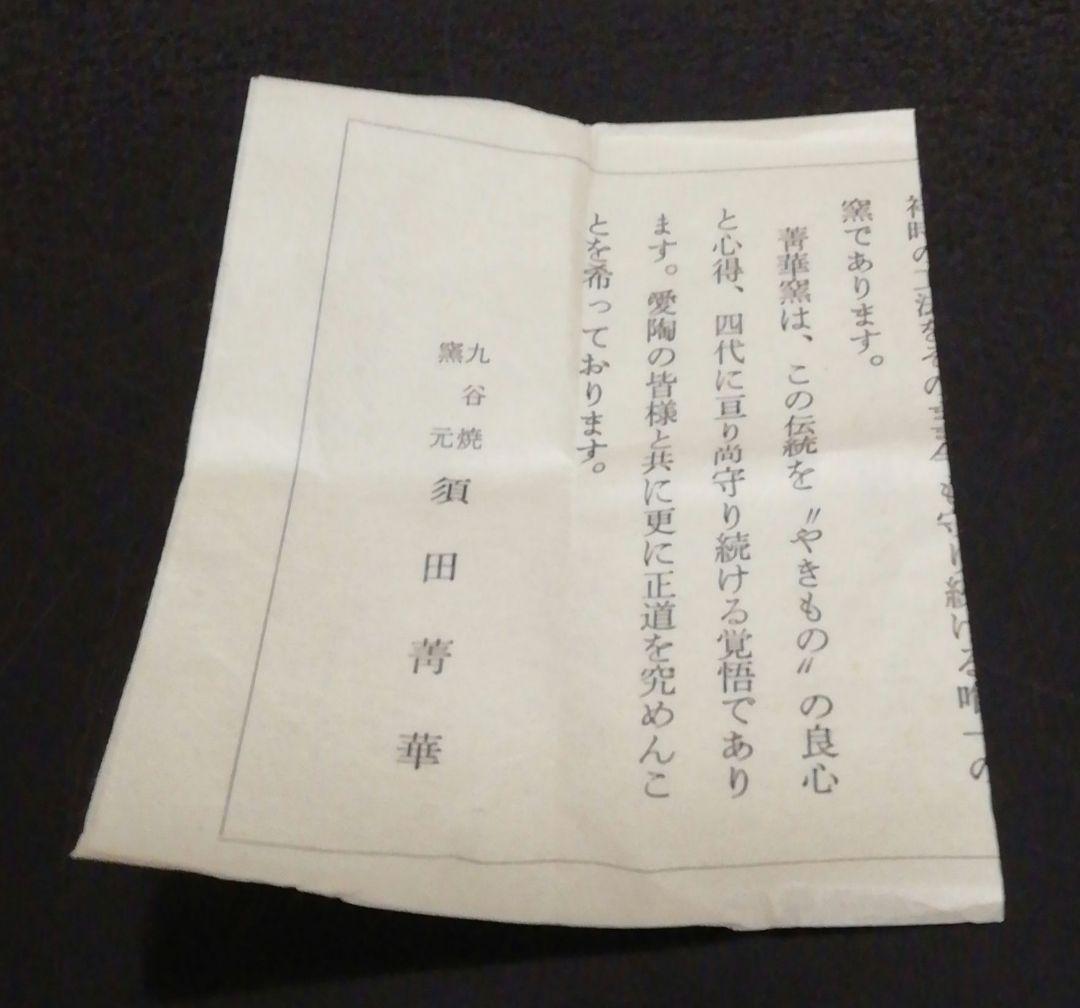 時の工法をそのまま今も守り続ける唯一の
窯であります。
菁華窯は、この伝統を〝やきもの〟の良心
と心得、四代に亘り尚守り続ける覚悟であり
ます。愛陶の皆様と共に更に正道を究めんこ
とを希っております。
九谷焼
窯元
須田菁華